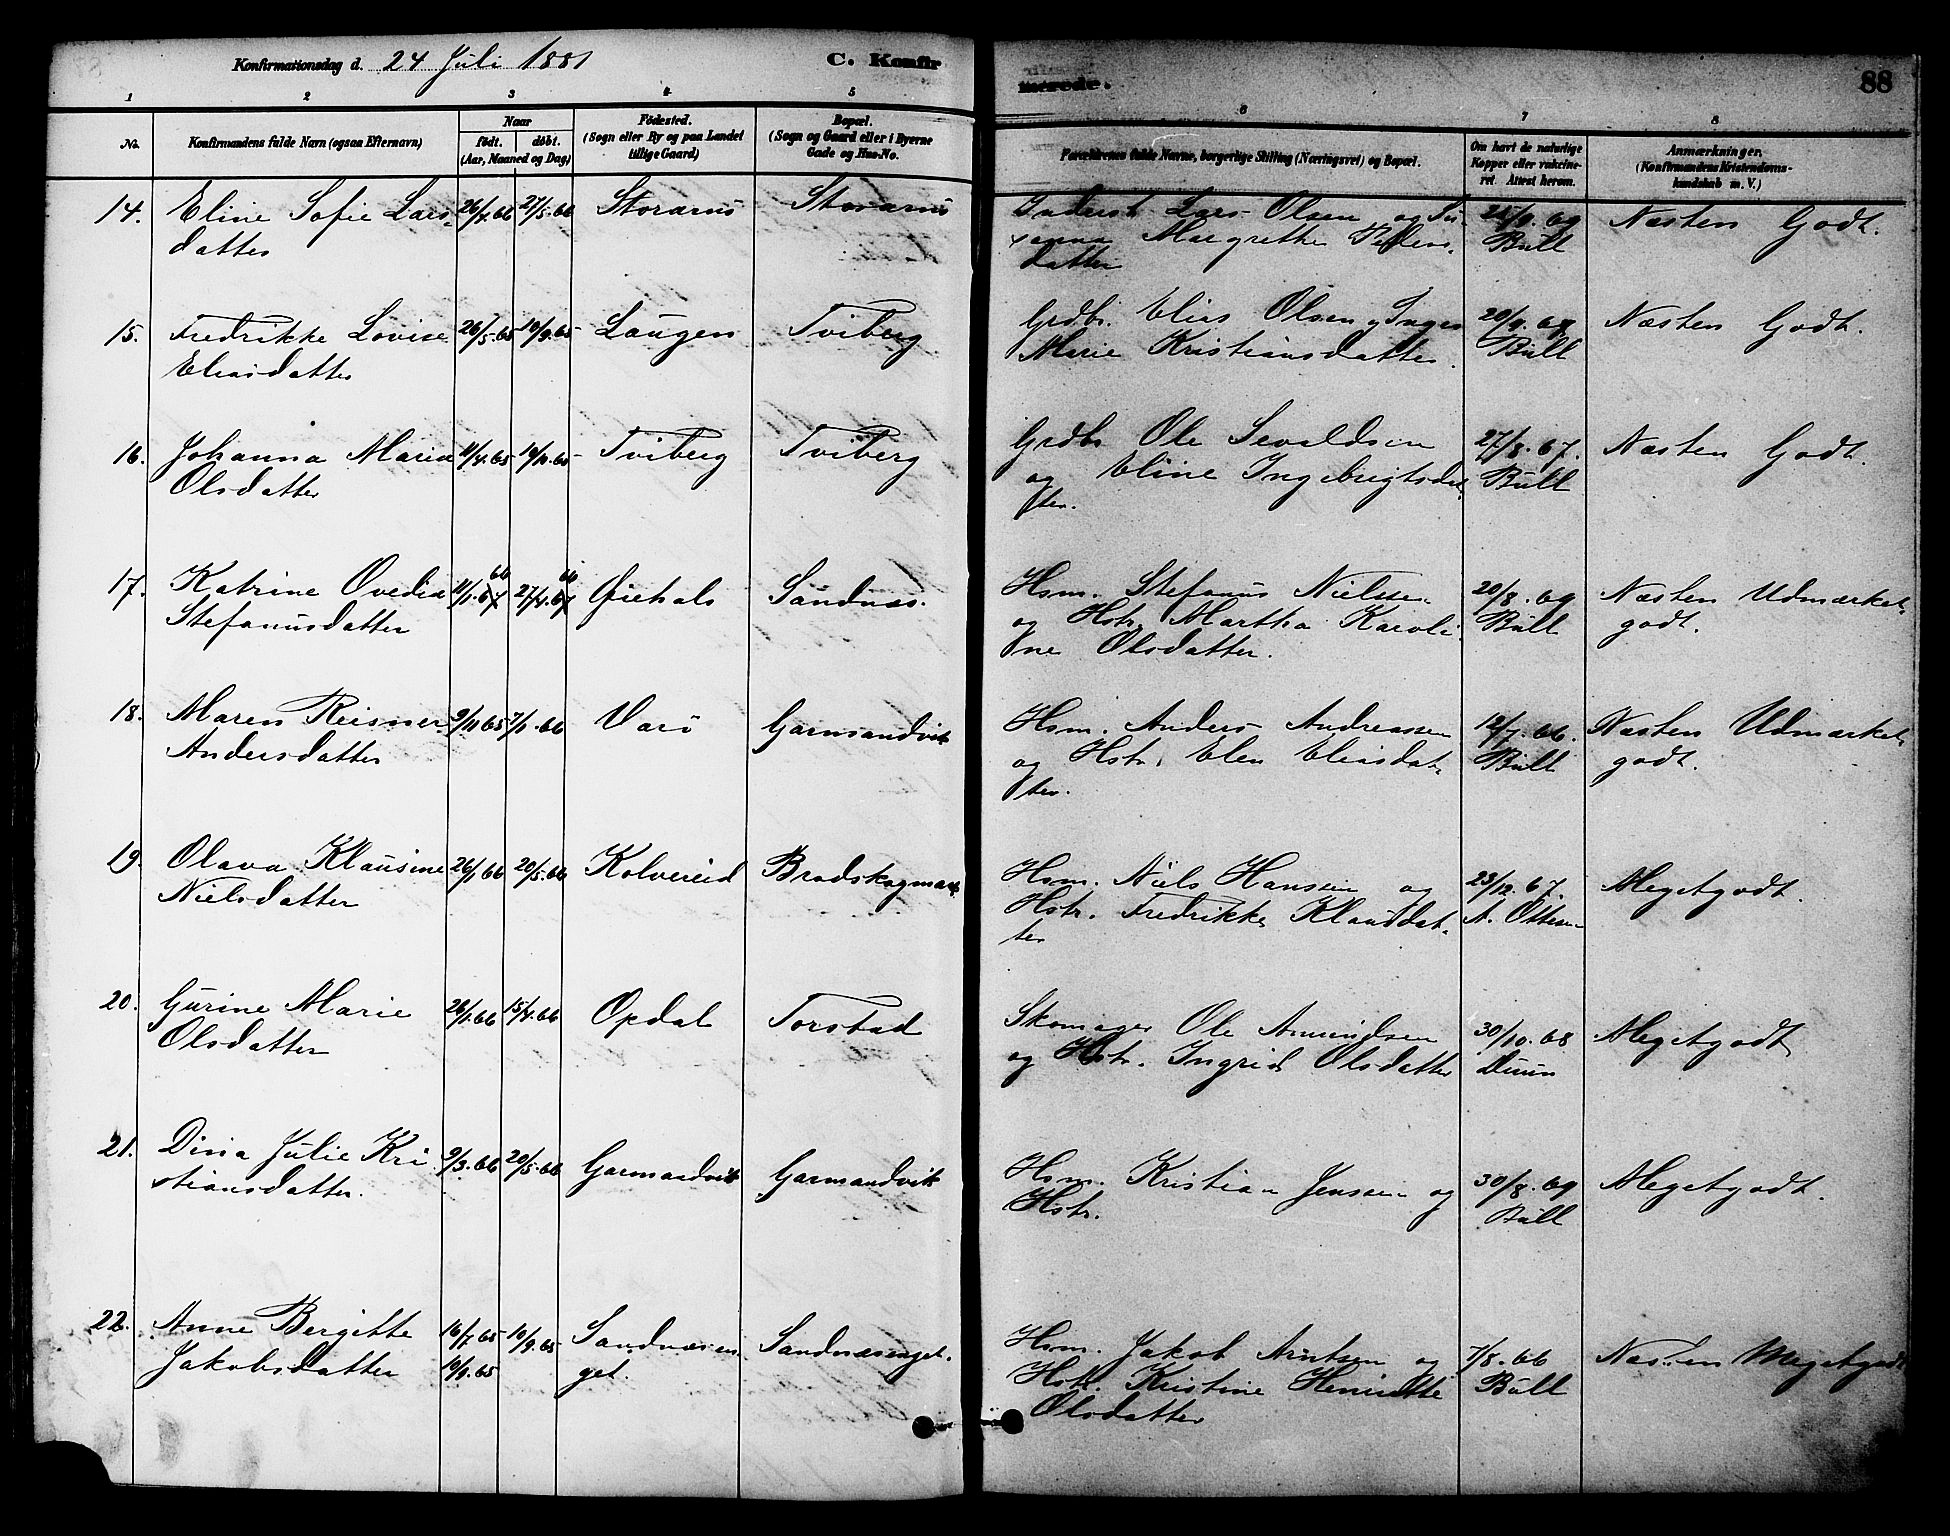 Konfirmationsdag d. 24 Juli 1881 C. Konfir
merede. 88
1 2 3 4 5 6 7 8
No. Konfirmandens fulde Navn (ogsaa Efternavn) Naar født. døbt. (Aar, Maaned og Dag) Födested. (Sogn eller By og paa Landet tillige Gaard) Bopæl. (Sogn og Gaard eller i Byerne Gade og Hus-No.
Forældrenes fulde Navne, borgerlige Stilling (Næringsvei) og Bopæl. Om havt de naturlige Kopper eller vakcineret. Attest herom. Anmærkninger. (Konfirmandens Kristendomskundskab m. V.)
14. Eline Sofie Lars 26/4.66 27/5.66 Storarnø Storarnø Inderst Lars Olsen og Su 25/9.69 Næsten Godt.
datter sanna Margrethe Bull
datter
15. Fredrikke Lovise 26/5.65 10/9.65 Laugen Tviberg Grdbr. Elias Olsen, Inger 20/9.68 Næsten Godt.
Eliasdatter Marie Kristiansdatter. Bull
16. Johanna Maria 11/4.65 Tviberg Tviberg Grdbr. Ole Sevaldsen 27/8.67. Næsten Godt.
Olsdatter og Eline Ingebrigtsdat Bull
ter.
17. Katrine Ovedia 11/1.66 27/4.66 Øiehals Sandnæs. Hsm. Stefanus Nielsen 20/8.69 Næsten Udmærket
Stefanusdatter og Hstr. Martha Karoli Bull godt.
ne Olsdatter.
18. Maren Reisner 9/11 65 7/1.66 Varø Garmandvik Hsm. Anders Andreassen 12/7.66. Næsten Udmærket
Andersdatter og Hstr. Elen Eliasdat Bull godt.
ter.
19. Olava Klausine 26/1 66 20/5.66 Kolvereid Brødskagmark Hsm. Niels Hansen og 23/12.67. Megetgodt.
Nielsdatter Hstr. Fredrikke Klausdat A. Ottesen
ter
20. Gurine Marie 26/1.66 15/4.66 Opdal Torstad Skomager Ole Amundsen 30/10.68 Megetgodt
Olsdatter og Hstr. Ingrid Olsdatter Duun
21. Dina Julie Kri 9/3.66 20/5.66 Garmandvik Garmandvik Hsm. Kristian Jensen og 30/8.69 Megetgodt.
stiansdatter. Hstr. Bull
22. Anne Bergitte 16/7.65 10/9.65 Sandnæsen Sandnæsenget. Hsm. Jakob Arntsen og 7/8.66 Næsten Megetgodt
Jakobsdatter 10/9.65 get. Hstr. Kristine Henriette Bull
Olsdatter